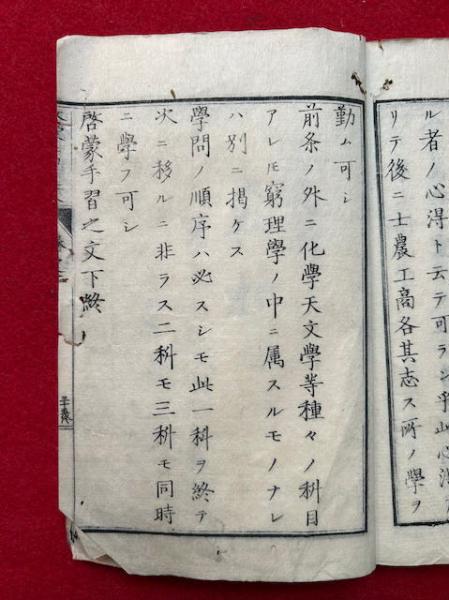 ル者ノ心得ト云テ可ラン乎此心得
リテ後ニ士農工商各其志ス所ノ學ヲ
勤ム可シ
前条ノ外ニ化學天文學等種々ノ科目
アレモ窮理學ノ中ニ属スルモノナレ
ハ別ニ掲ケス
學問ノ順序ハ必スシモ此一科ヲ終テ
次ニ移ルニ非ラス二科モ三科モ同時
ニ學フ可シ
啓蒙手習之文下終